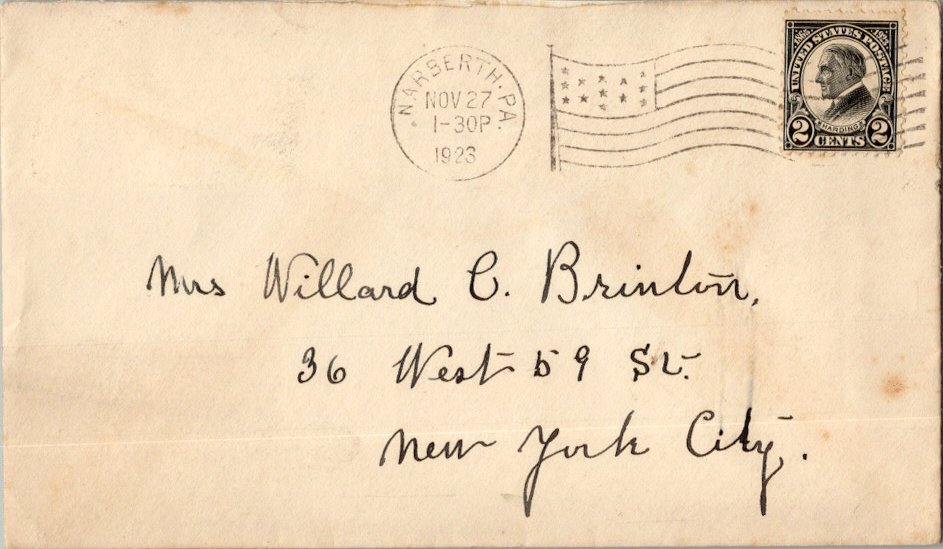 NARBERTH. PA.
NOV 27
1-30P
1923
1865 UNITED STATES POSTAGE 1923
HARDING
2 CENTS 2
Mrs Willard C. Brinton,
36 West 59 St.
New York City.